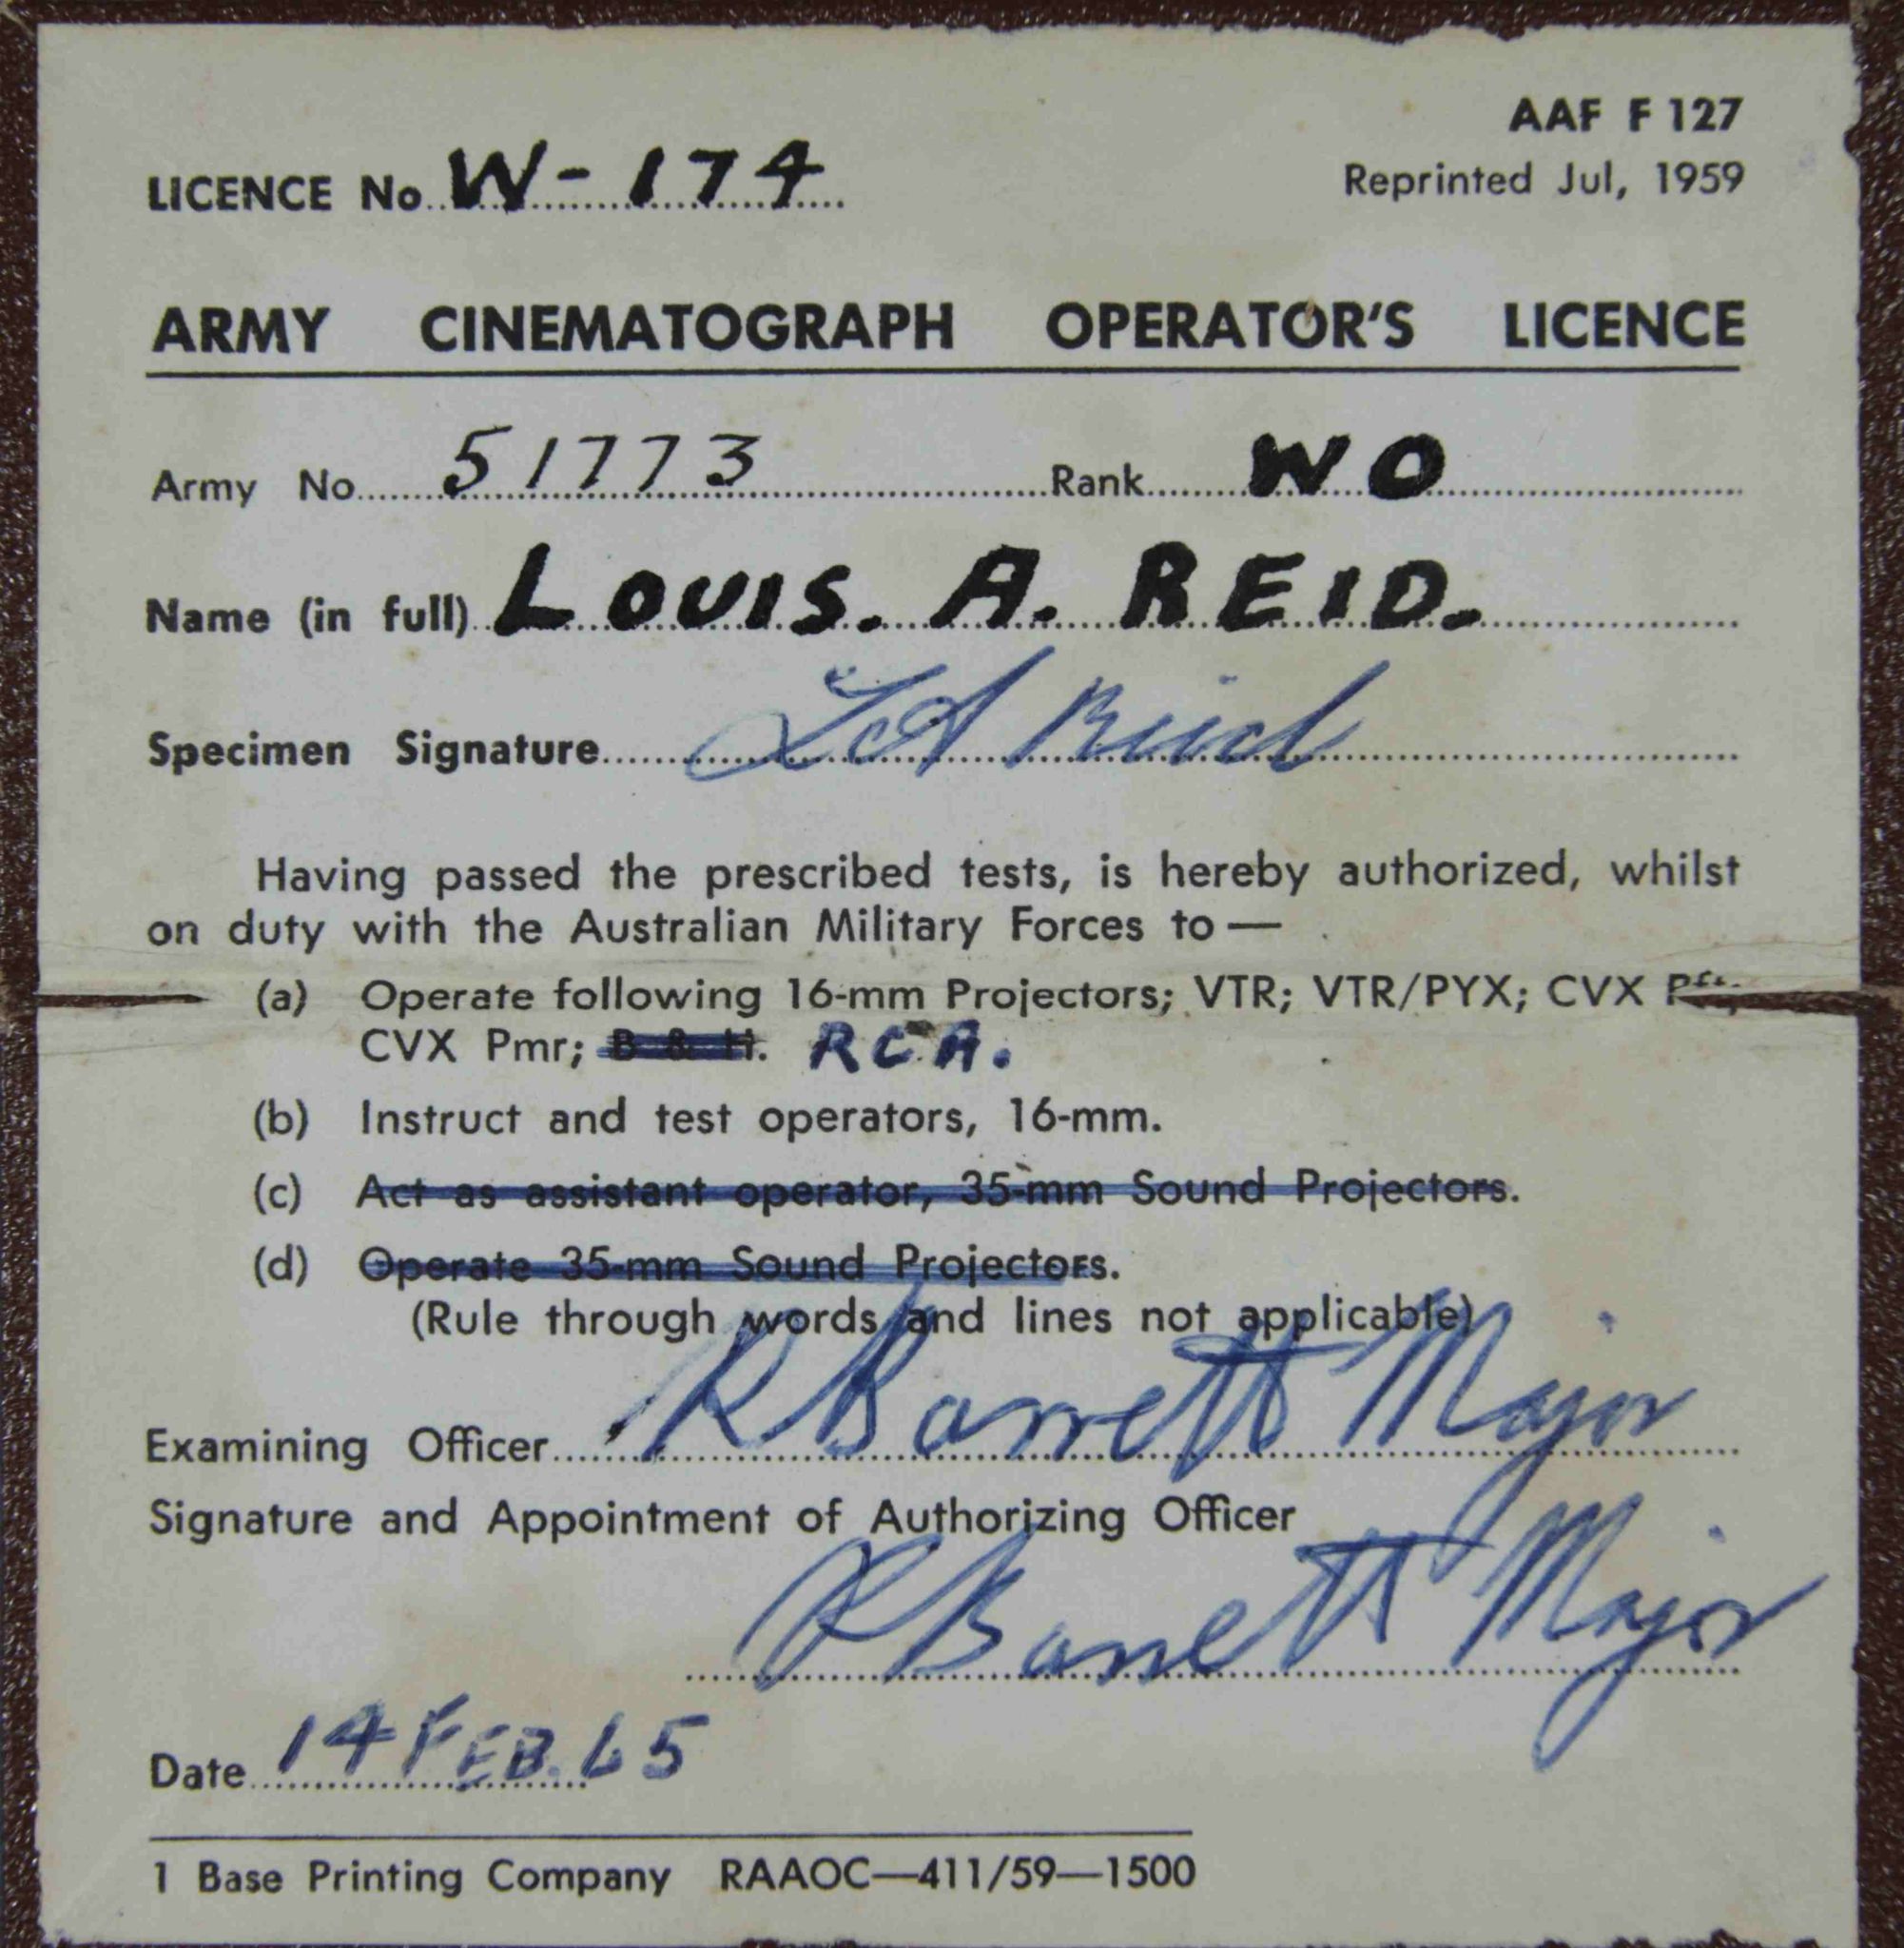 AAF F 127
LICENCE No. W-174
Reprinted Jul, 1959
ARMY CINEMATOGRAPH OPERATOR'S LICENCE
Army No. 51773 Rank WO
Name (in full) LOUIS. A. REID.
Specimen Signature LA Reid
Having passed the prescribed tests, is hereby authorized, whilst
on duty with the Australian Military Forces to —
(a) Operate following 16-mm Projectors; VTR; VTR/PYX; CVX
CVX Pmr; B & H. RCA.
(b) Instruct and test operators, 16-mm.
(c) Act as assistant operator, 35-mm Sound Projectors.
(d) Operate 35-mm Sound Projectors.
(Rule through words and lines not applicable)
Examining Officer R Barrett Major
Signature and Appointment of Authorizing Officer
R Barrett Major
Date 14 FEB. 65
1 Base Printing Company RAAOC—411/59—1500